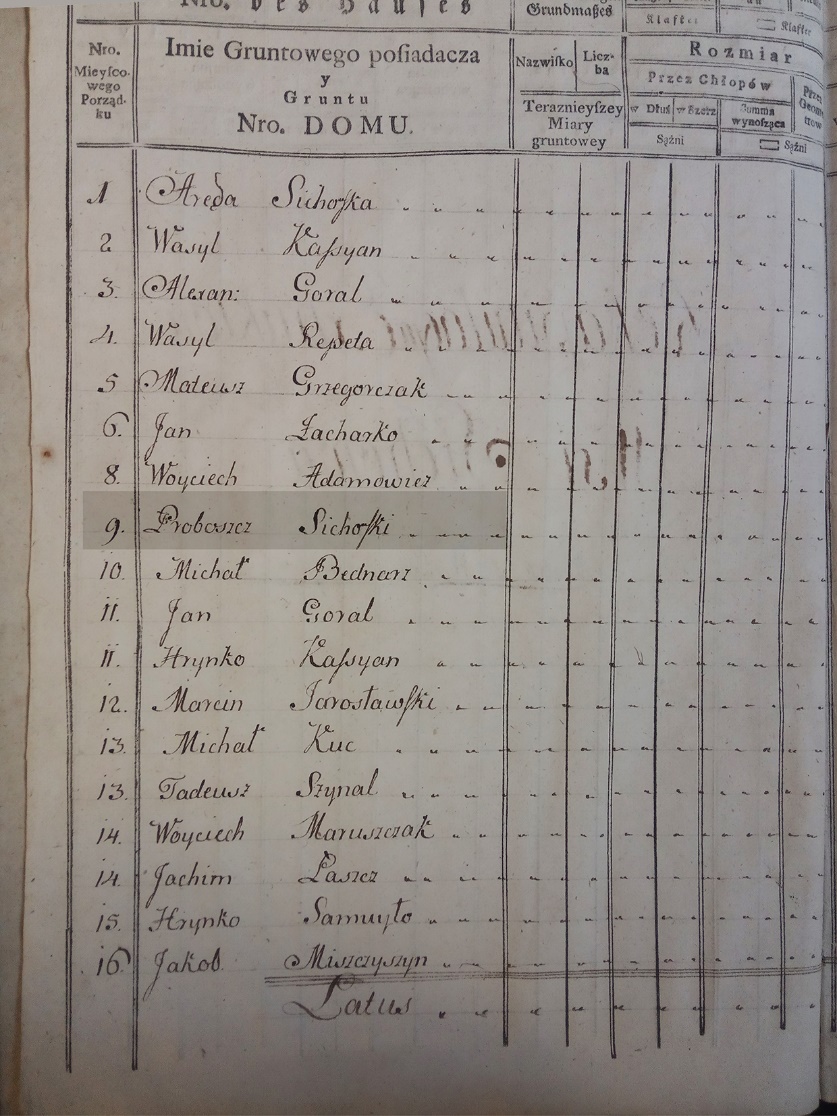 Nro. des Hauses
Grundmaßes
Klafter
Klafter
Nro.
Mieyſco-
wego
Porząd-
ku
Imie Gruntowego poſiadacza
y
Gruntu
Nro. DOMU.
Nazwiſko
Licz-
ba
Teraznieyſzey
Miary
gruntowey
Rozmiar
Przez Chłopów
w Dłuż
w Szerz
Summa
wynoſząca
Przez
Geome
trow
Sążni
Sążni
1 Areda Sichoſka
2 Wasyl Kaſsyan
3. Alexan: Goral
4. Wasyl Repeta
5 Mateusz Grzegorczak
6. Jan Zacharko
8. Woyciech Adamowicz
9. Proboszcz Sichoſki
10. Michał Bednarz
11. Jan Goral
11. Hrynko Kaſsyan
12. Marcin Jarosławſki
13. Michał Kuc
13. Tadeusz Szynal
14. Woyciech Maruszczak
14. Jachim Laszcz
15. Hrynko Samuyło
16 Jakob Miszczyszyn
Latus